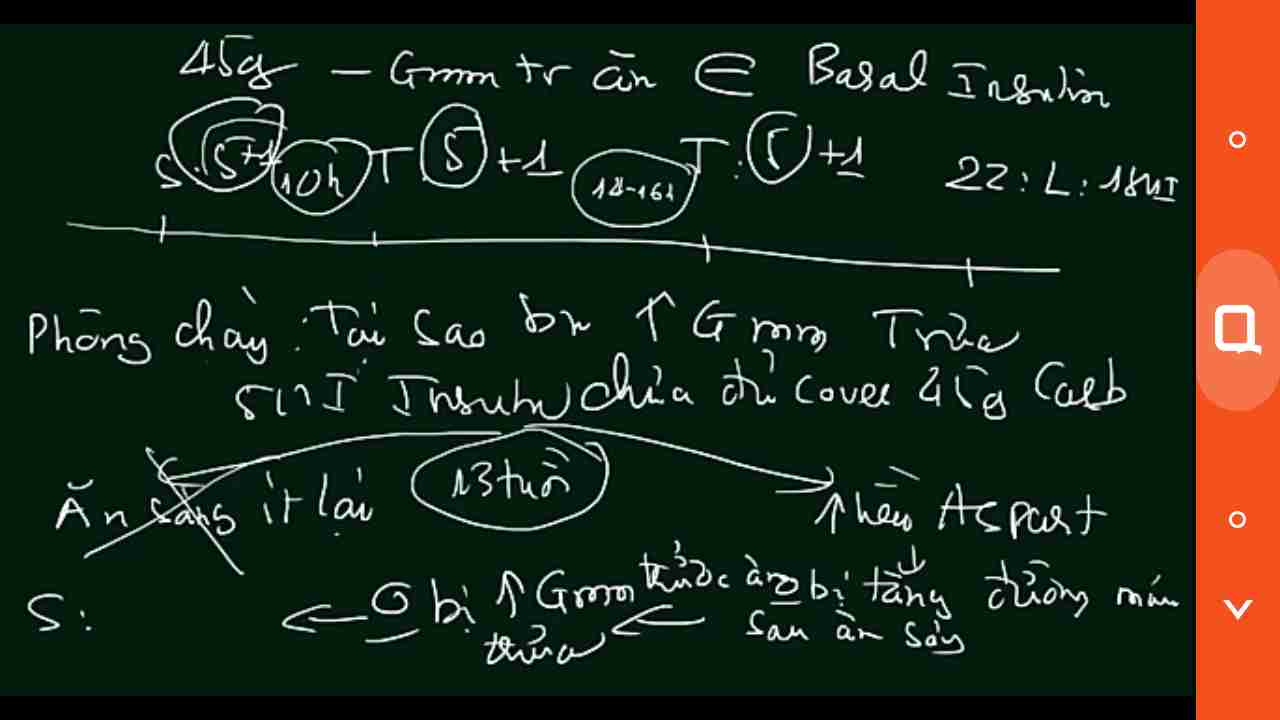 45g – Gmm tr ăn ∈ Basal Insulin
S: 5+1 10h T 5 +1 14-16h T: 5 +1 22: L: 18UI
Phòng chày: Tại sao bn ↑ Gmm Trưa
5UI Insulin chưa đủ cover 45g Carb
Ăn sáng ít lại 13 tuổi ↑ liều Aspart
S: ← 0 bị ↑ Gmm trước ăn 0 bị tăng đường máu
trưa ← sau ăn sáng